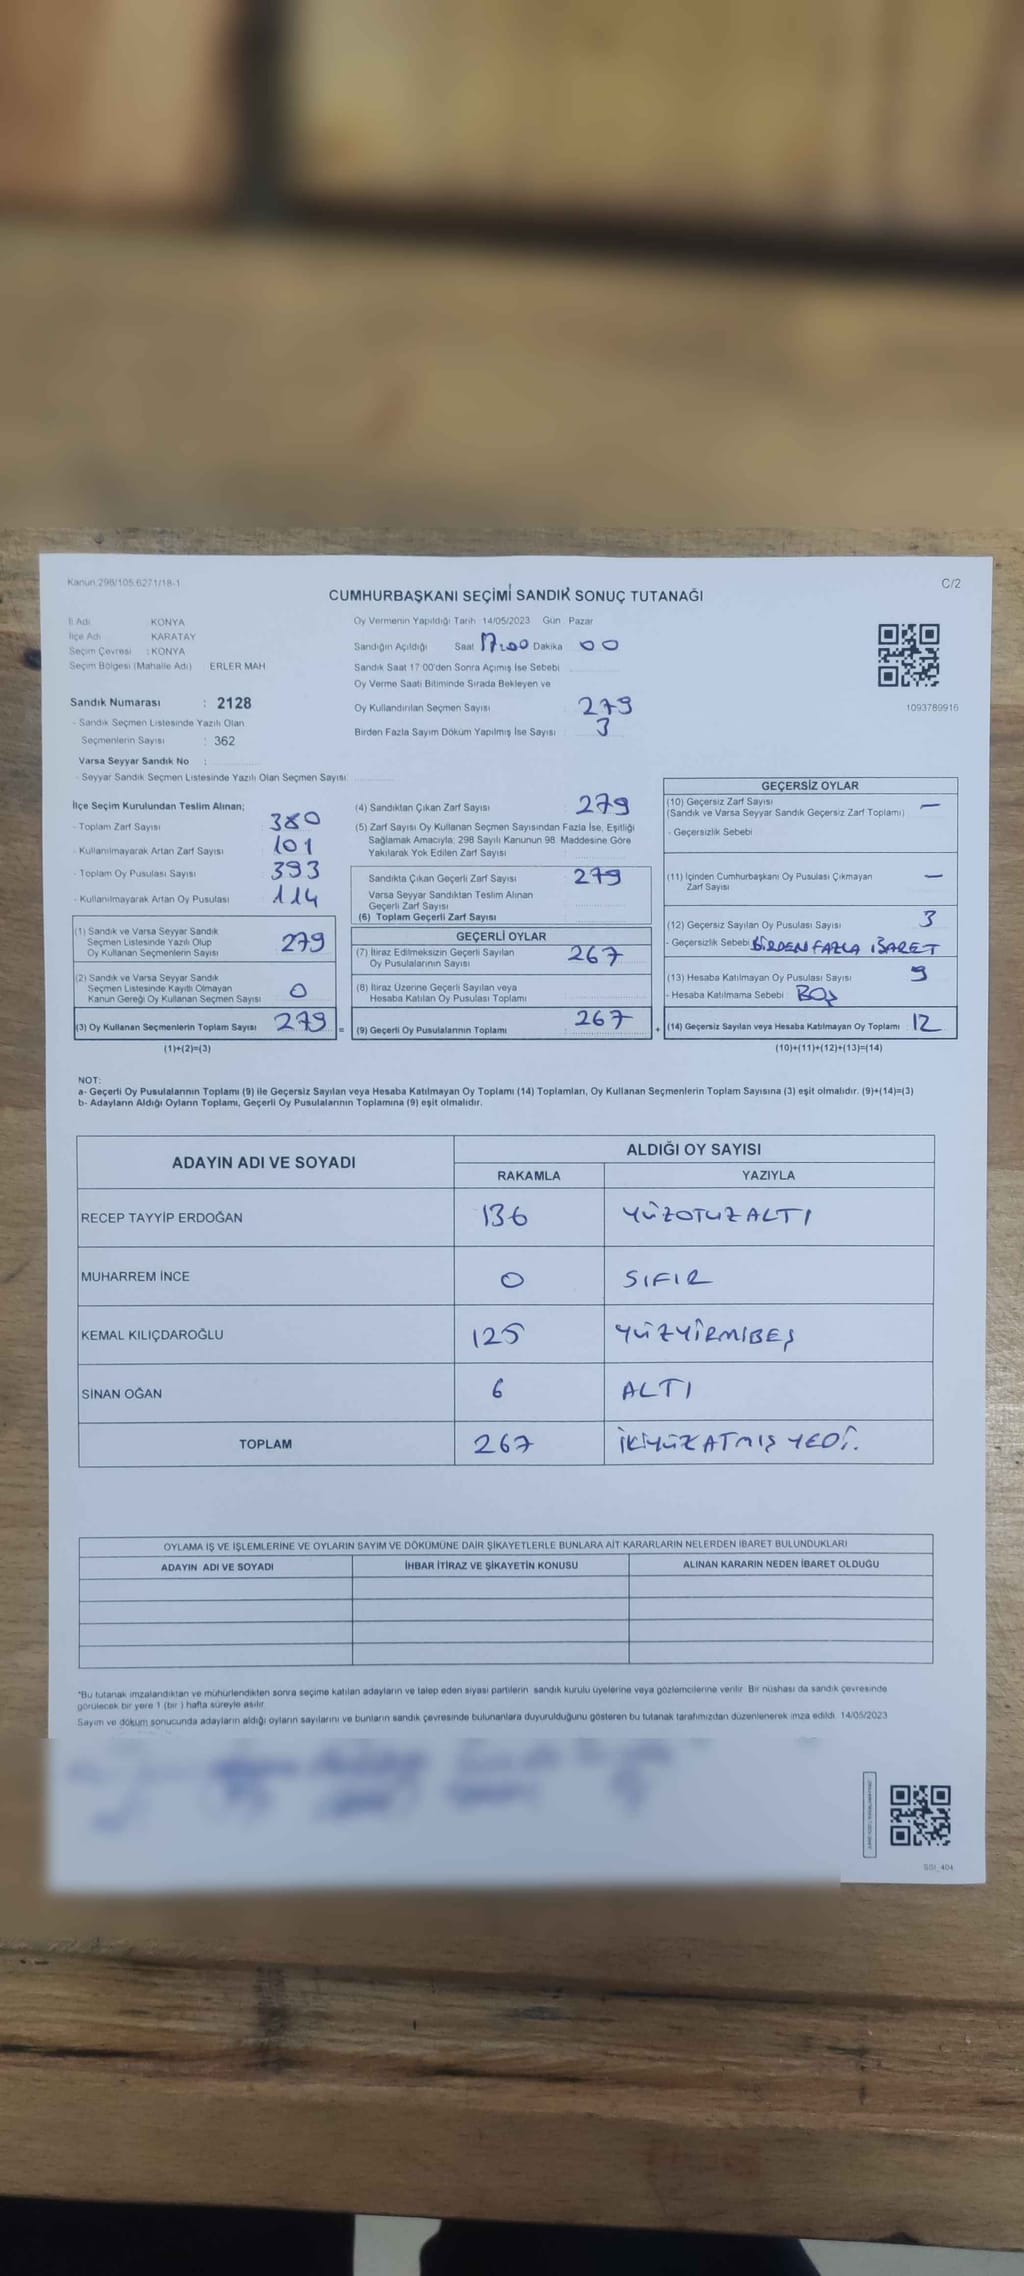 Kanun:298/105,6271/18-1
C/2
CUMHURBAŞKANI SEÇİMİ SANDIK SONUÇ TUTANAĞI
İl Adı KONYA
İlçe Adı KARATAY
Seçim Çevresi : KONYA
Seçim Bölgesi (Mahalle Adı) ERLER MAH
Sandık Numarası : 2128
- Sandık Seçmen Listesinde Yazılı Olan
Seçmenlerin Sayısı : 362
Varsa Seyyar Sandık No :
- Seyyar Sandık Seçmen Listesinde Yazılı Olan Seçmen Sayısı
Oy Vermenin Yapıldığı Tarih 14/05/2023 Gün Pazar
Sandığın Açıldığı Saat 17:00 Dakika 00
Sandık Saat 17:00'den Sonra Açımış İse Sebebi
Oy Verme Saati Bitiminde Sırada Bekleyen ve
Oy Kullandırılan Seçmen Sayısı 279
Birden Fazla Sayım Döküm Yapılmış İse Sayısı 3
1093789916
İlçe Seçim Kurulundan Teslim Alınan;
- Toplam Zarf Sayısı 380
- Kullanılmayarak Artan Zarf Sayısı 101
- Toplam Oy Pusulası Sayısı 393
- Kullanılmayarak Artan Oy Pusulası 114
(1) Sandık ve Varsa Seyyar Sandık
Seçmen Listesinde Yazılı Olup
Oy Kullanan Seçmenlerin Sayısı 279
(2) Sandık ve Varsa Seyyar Sandık
Seçmen Listesinde Kayıtlı Olmayan
Kanun Gereği Oy Kullanan Seçmen Sayısı 0
(3) Oy Kullanan Seçmenlerin Toplam Sayısı 279 =
(1)+(2)=(3)
(4) Sandıktan Çıkan Zarf Sayısı 279
(5) Zarf Sayısı Oy Kullanan Seçmen Sayısından Fazla İse, Eşitliği
Sağlamak Amacıyla; 298 Sayılı Kanunun 98. Maddesine Göre
Yakılarak Yok Edilen Zarf Sayısı
Sandıkta Çıkan Geçerli Zarf Sayısı 279
Varsa Seyyar Sandıktan Teslim Alınan
Geçerli Zarf Sayısı
(6) Toplam Geçerli Zarf Sayısı
GEÇERLİ OYLAR
(7) İtiraz Edilmeksizin Geçerli Sayılan
Oy Pusulalarının Sayısı 267
(8) İtiraz Üzerine Geçerli Sayılan veya
Hesaba Katılan Oy Pusulası Toplamı
(9) Geçerli Oy Pusulalarının Toplamı 267 +
GEÇERSİZ OYLAR
(10) Geçersiz Zarf Sayısı —
(Sandık ve Varsa Seyyar Sandık Geçersiz Zarf Toplamı)
- Geçersizlik Sebebi
(11) İçinden Cumhurbaşkanı Oy Pusulası Çıkmayan
Zarf Sayısı —
(12) Geçersiz Sayılan Oy Pusulası Sayısı 3
- Geçersizlik Sebebi BİRDEN FAZLA İŞARET
(13) Hesaba Katılmayan Oy Pusulası Sayısı 9
- Hesaba Katılmama Sebebi BOŞ
(14) Geçersiz Sayılan veya Hesaba Katılmayan Oy Toplamı : 12
(10)+(11)+(12)+(13)=(14)
NOT:
a- Geçerli Oy Pusulalarının Toplamı (9) ile Geçersiz Sayılan veya Hesaba Katılmayan Oy Toplamı (14) Toplamları, Oy Kullanan Seçmenlerin Toplam Sayısına (3) eşit olmalıdır. (9)+(14)=(3)
b- Adayların Aldığı Oyların Toplamı, Geçerli Oy Pusulalarının Toplamına (9) eşit olmalıdır.
ADAYIN ADI VE SOYADI ALDIĞI OY SAYISI
RAKAMLA YAZIYLA
RECEP TAYYİP ERDOĞAN 136 YÜZOTUZALTI
MUHARREM İNCE 0 SIFIR
KEMAL KILIÇDAROĞLU 125 YÜZYİRMİBEŞ
SİNAN OĞAN 6 ALTI
TOPLAM 267 İKİYÜZATMIŞ YEDİ.
OYLAMA İŞ VE İŞLEMLERİNE VE OYLARIN SAYIM VE DÖKÜMÜNE DAİR ŞİKAYETLERLE BUNLARA AİT KARARLARIN NELERDEN İBARET BULUNDUKLARI
ADAYIN ADI VE SOYADI İHBAR İTİRAZ VE ŞİKAYETİN KONUSU ALINAN KARARIN NEDEN İBARET OLDUĞU
*Bu tutanak imzalandıktan ve mühürlendikten sonra seçime katılan adayların ve talep eden siyasi partilerin sandık kurulu üyelerine veya gözlemcilerine verilir. Bir nüshası da sandık çevresinde
görülecek bir yere 1 (bir ) hafta süreyle asılır.
Sayım ve döküm sonucunda adayların aldığı oyların sayılarını ve bunların sandık çevresinde bulunanlara duyurulduğunu gösteren bu tutanak tarafımızdan düzenlenerek imza edildi. 14/05/2023
SGI_404